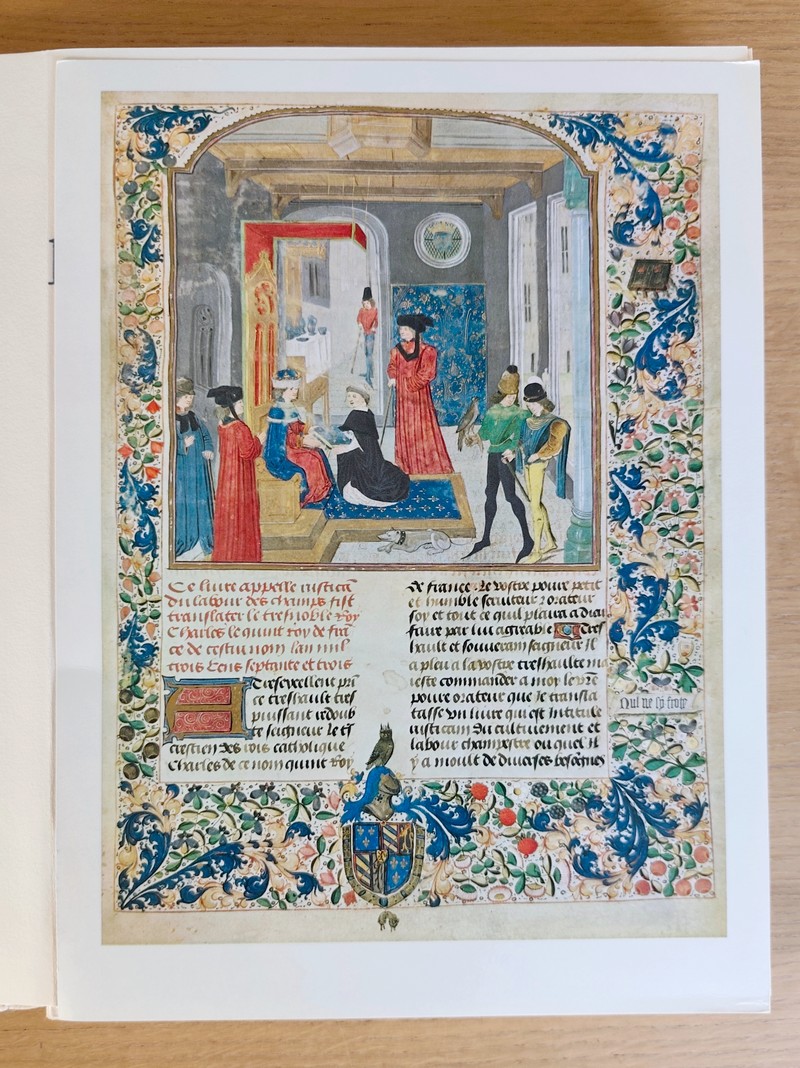 Ce livre appelle rustican
du labour des champs fist
translater le tresnoble Roy
Charles le quint roy de fran
ce de cestui nom lan mil
trois Cens septante et trois
Tresexellent prin
ce treshault tres
puissant redoub
te seigneur le
crestien des rois catholique
Charles de ce nom quint Roy
de france. Le vostre povre petit
et humble serviteur orateur
soy et tout ce quil plaira a dieu
faire par lui agreable Tres
hault et souverain seigneur il
a pleu a la vostre treshaulte ma
ieste commander a moy le vostre
povre orateur que Je transla
tasse un livre qui est intitule
rustican du cultivement et
labour champestre ou quel il
y a moult de diverses besoignes
Nul ne sy frote